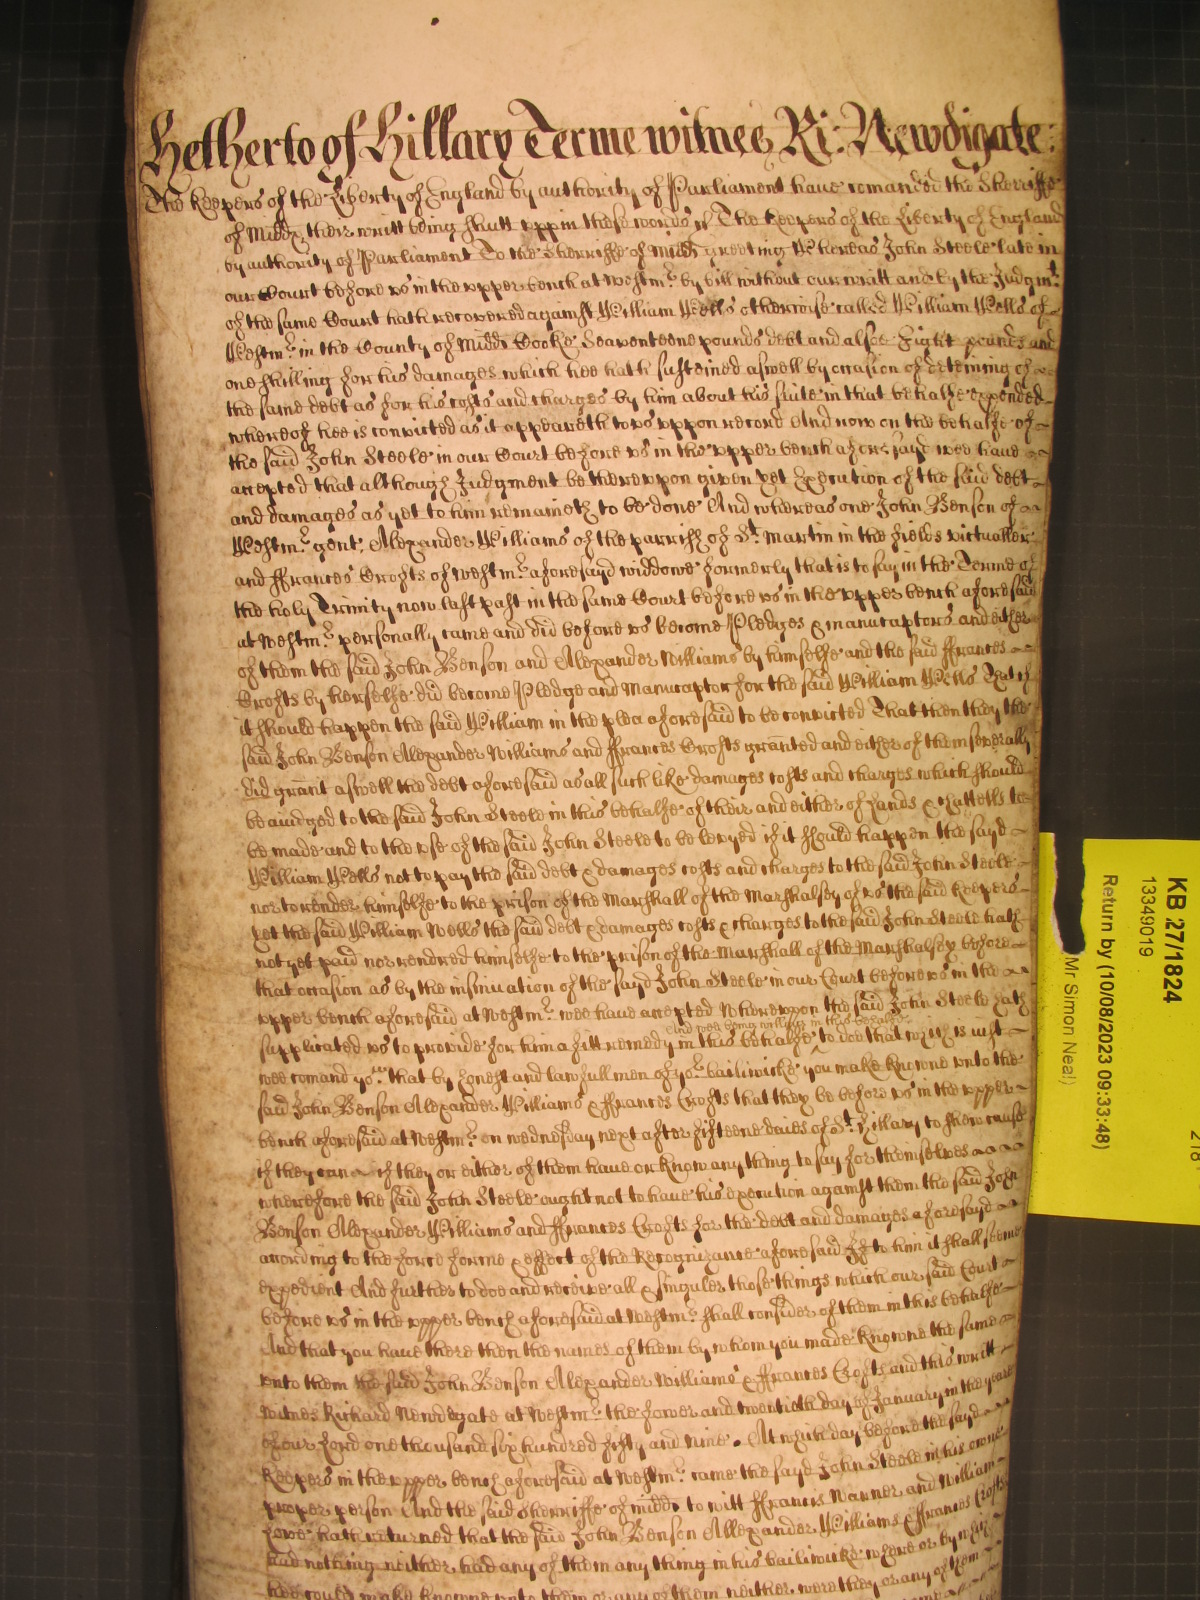 Hetherto of Hillary Terme witnes Ri: Newdigate:
The Keepers of the Liberty of England by authority of Parliament have comanded the Sherriffe
of Midds their writt being shutt uppin these words ss The Keepers of the Liberty of England
by authority of Parliament To the Sherriffe of Midds greeting Whereas John Steele late in
our Court before us in the upper bench at Westmr by bill without our writt and by the Judgmt
of the same Court hath recovered against William Wells otherwise called William Wells of
Westmr in the County of Midds Cooke Seaventeene pounds debt and alsoe Eight pounds and
one shilling for his damages which hee hath susteined aswell by occasion of deteining of
the same debt as for his costs and charges by him about his suite in that behalfe expended
whereof hee is convicted as it appeareth to us uppon record And now on the behalfe of
the said John Steele in our Court before us in the upper bench aforesaid wee have
accepted that although Judgment be thereuppon given yet Execution of the said debt
and damages as yet to him remaineth to be done And whereas one John Benson of
Westmr gent Alexander Williams of the parrish of St Martin in the fields victualler
and ffrances Crofts of Westmr aforesayd widdowe formerly that is to say in the Terme of
the holy Trinity now last past in the same Court before us in the upper bench aforesaid
at Westmr personally came and did before us become Pledges & manucaptors and either
of them the said John Benson and Alexander Williams by himselfe and the said ffrances
Crofts by herselfe did become Pledge and Manucaptor for the said William Wells That if
it should happen the said William in the plea aforesaid to be convicted That then they the
said John Benson Alexander Williams and ffrances Crofts granted and either of them severally
did grant aswell the debt aforesaid as all such like damages costs and charges which should
be aiudged to the said John Steele in this behalfe of their and either of Lands & Chattells to
be made and to the use of the said John Steele to be levyed if it should happen the sayd
William Wells not to pay the said debt & damages costs and charges to the said John Steele
nor to render himselfe to the prison of the Marshall of the Marshalsey of us the said Keepers
yet the said William Wells the said debt & damages costs & charges to the said John Steele hath
not yet paid nor rendred himselfe to the prison of the Marshall of the Marshalsey before
that occasion as by the insinuation of the sayd John Steele in our Court before us in the
upper bench aforesaid at Westmr wee have accepted Whereuppon the said John Steele hath
And wee being willing in this behalfe
supplicated us to provide for him a fitt remedy in this behalfe to doe that which is iust
wee comand you that by honest and lawfull men of yor bailiwicke you make knowne unto the
said John Benson Alexander Williams & ffrances Crofts that they be before us in the upper
bench aforesaid at Westmr on wednesday next after fifteene daies of St Hillary to shew cause
if they can if they or either of them have or know any thing to say for themselves
wherefore the said John Steele ought not to have his execution against them the said John
Benson Alexander Williams and ffrances Crofts for the debt and damages aforesayd
according to the force forme & effect of the Recognizance aforesaid If to him it shall seeme
expedient And further to doe and receive all & singuler those things which our said Court
before us in the upper bench aforesaid at Westmr shall consider of them in this behalfe
And that you have there then the names of them by whom you made knowne the same
unto them the said John Benson Alexander Williams & ffrances Crofts and this writt
witnes Richard Newdegate at Westmr the fower and twentieth day of January in the yeare
of our Lord one thousand six hundred fifty and nine At which day before the sayd
Keepers in the upper bench aforesaid at Westmr came the sayd John Steele in his owne
proper person And the said Sherriffe of midds to witt ffrancis Warner and William
Love hath returned that the said John Benson Allexander Williams & ffrances Crofts
had nothing neither had any of them any thing in his bailiwicke where or by which
hee could make knowne unto them or any of them neither were they or any of them
KB 27/1824
13349019
Return by (10/08/2023 09:33:48)
Mr Simon Neal